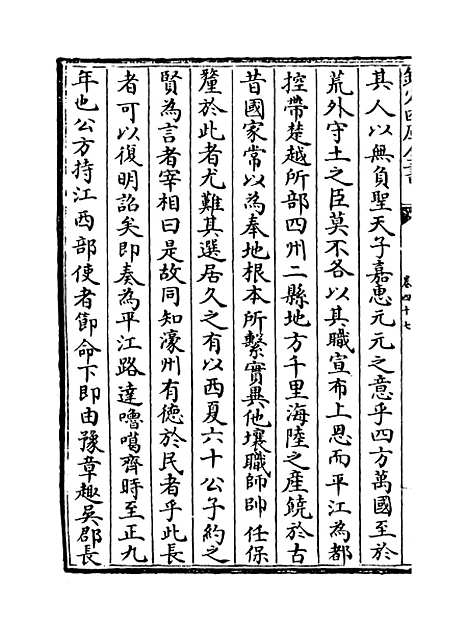 其人以無負聖天子嘉惠元元之意乎四方萬國至於
荒外守土之臣莫不各以其職宣布上恩而平江為都
控帶楚越所部四州二縣地方千里海陸之產饒於古
昔國家常以為奉地根本所繫實異他壤職師帥 任保
釐於此者尤難其選居久之有以西夏六十公子約之
賢為言者宰相曰是故同知濠州有德於民者乎此長
者可以復明詔矣即奏為平江路達嚕噶齊時至正九
年也公方持江西部使者節命下即由豫章趣吳郡長
卷四十七